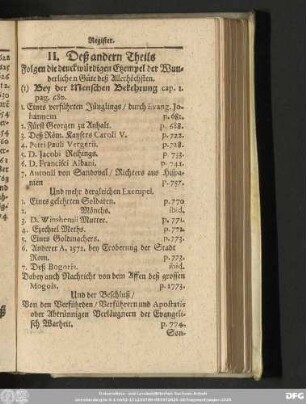 Register.
II. Deß andern Theils
Folgen die denckwürdigen Exempel der Wun-
derlichen Güte deß Allerhöchsten.
(1) Bey der Menschen Bekehrung cap. 1.
pag. 680.
1. Eines verführten Jünglings / durch Evang. Jo-
hannem p. 681.
2. Fürst Georgen zu Anhalt. p. 688.
3. Deß Röm. Kaysers Caroli V. p. 722.
4. Petri Pauli Vergerii. p. 728.
5. D. Jacobi Reihings. p. 733.
6. D. Francisci Albani. p. 742.
7. Antonii von Sandoval / Richters aus Hispa-
nien p. 757.
Und mehr dergleichen Exempel.
1. Eines gelehrten Soldaten. p. 770
2. Mönchs. ibid.
3. D. Winshemii Mutter. p. 771.
4. Ezechiel Meths. p. 772.
5. Eines Goldmachers. p. 773.
6. Anderer A. 1571. bey Eroberung der Stadt
Rom. p. 773.
7. Deß Bogoris. ibid.
Dabey auch Nachricht von dem Affen deß grossen
Mogols. p. 1773.
Und der Beschluß /
Von den Verführden / Verführern und Apostatis
oder Abtrünnigen Verläugnern der Evangeli-
sch Warheit. p. 774.
Son-
DFG